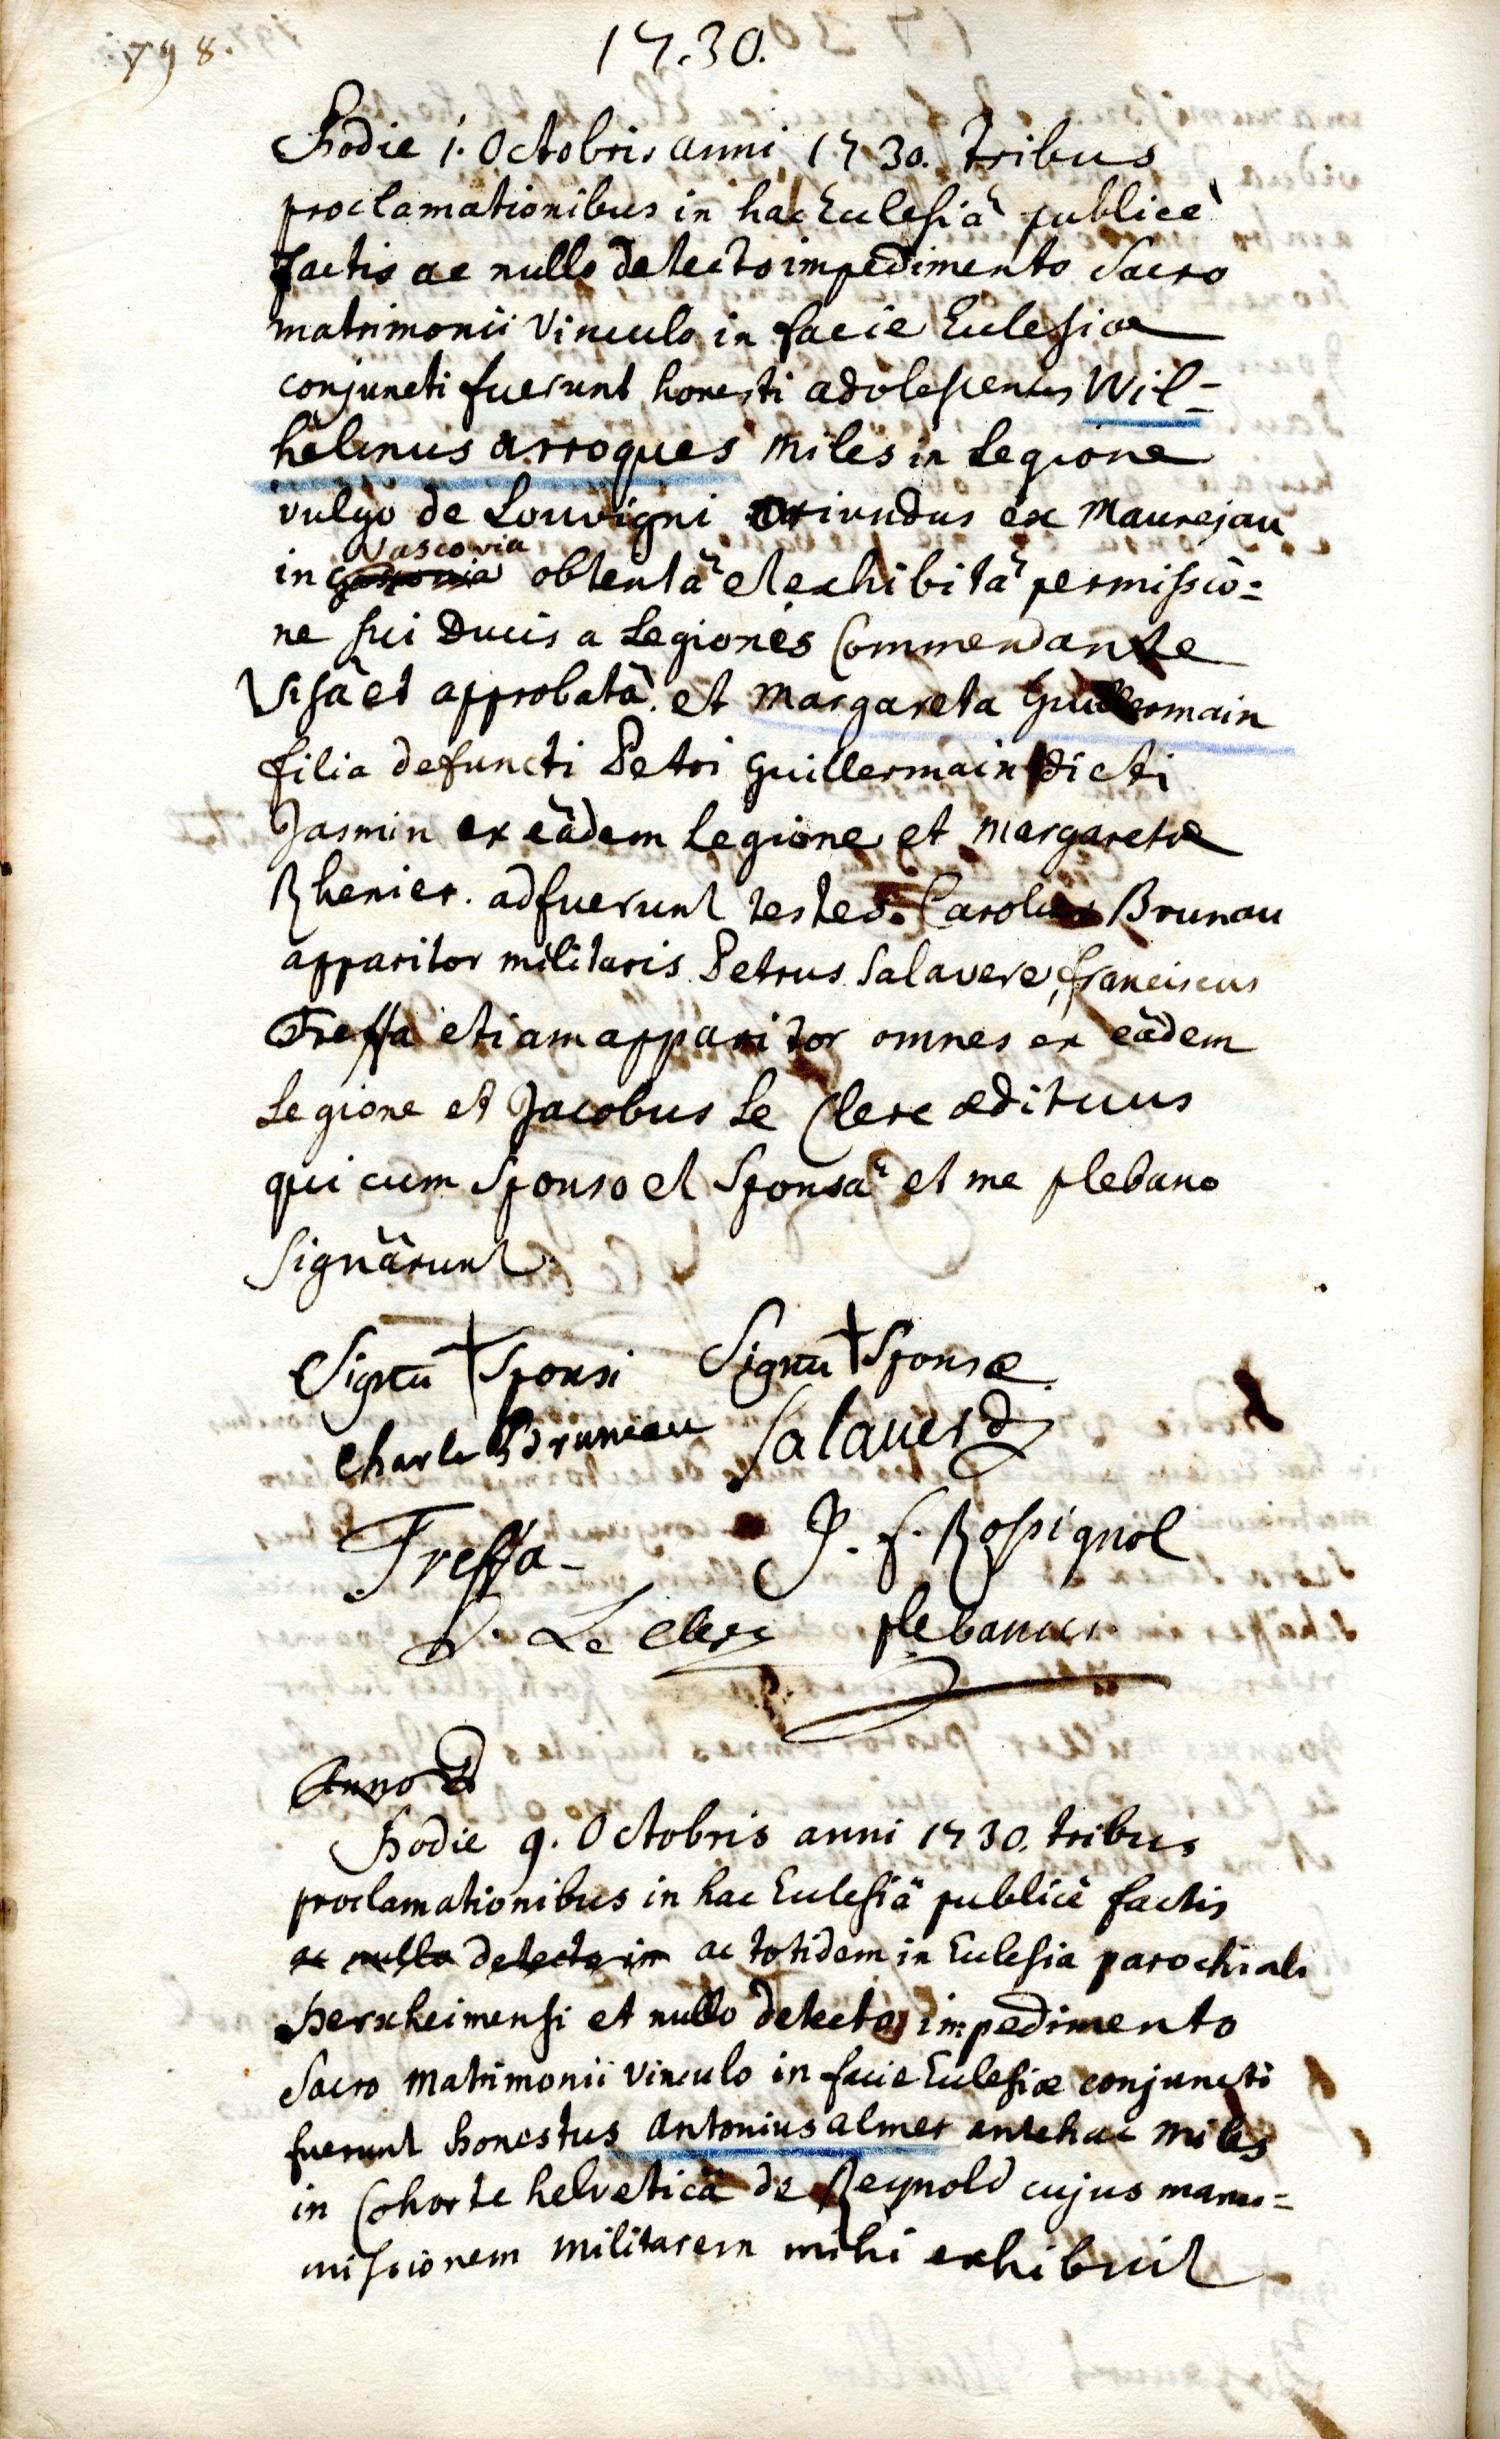 798.
1730.
Hodie 1. Octobris anni 1730. tribus
proclamationibus in hac Eclesiâ publicè
factis ac nullo detecto impedimento Sacro
matrimonii Vinculo in facie Eclesiae
conjuncti fuerunt honesti adolescentes Wil=
helmus arroques miles in Legione
vulgo de Louvigni oriundus ex Maurejau
Vasconia
in gasconia obtentâ et exhibitâ permissio=
ne sui Ducis a Legionis Commendante
Visâ et approbatâ. et Margareta Guillermain
filia defuncti Petri Guillermain dicti
Jasmin ex eâdem Legione et Margaretae
Rhenier. adfuerunt testes. Carolus Brunau
apparitor militaris Petrus Salavere, franciscus
Treffa etiam apparitor omnes ex eâdem
Legione et Jacobus Le Clerc ædituus
qui cum Sponso et Sponsâ et me plebano
Signârunt.
Signū + Sponsi Signū + Sponsæ
Charle Bruneau Salauerd
Treffa- P. f. Rossignol
J. Le Clerc plebanus.
Anno D
Hodie 9. Octobris anni 1730. tribus
proclamationibus in hac Eclesiâ publicè factis
ac nullo detecto im ac totidem in Eclesia parochiali
Herxheimensi et nullo detecto impedimento
Sacro Matrimonii Vinculo in facie Eclesiæ conjuncti
fuerunt honestus Antonius almer antehac Miles
in Cohorte helveticâ de Reynold cujus manu=
missionem militarem mihi exhibuit